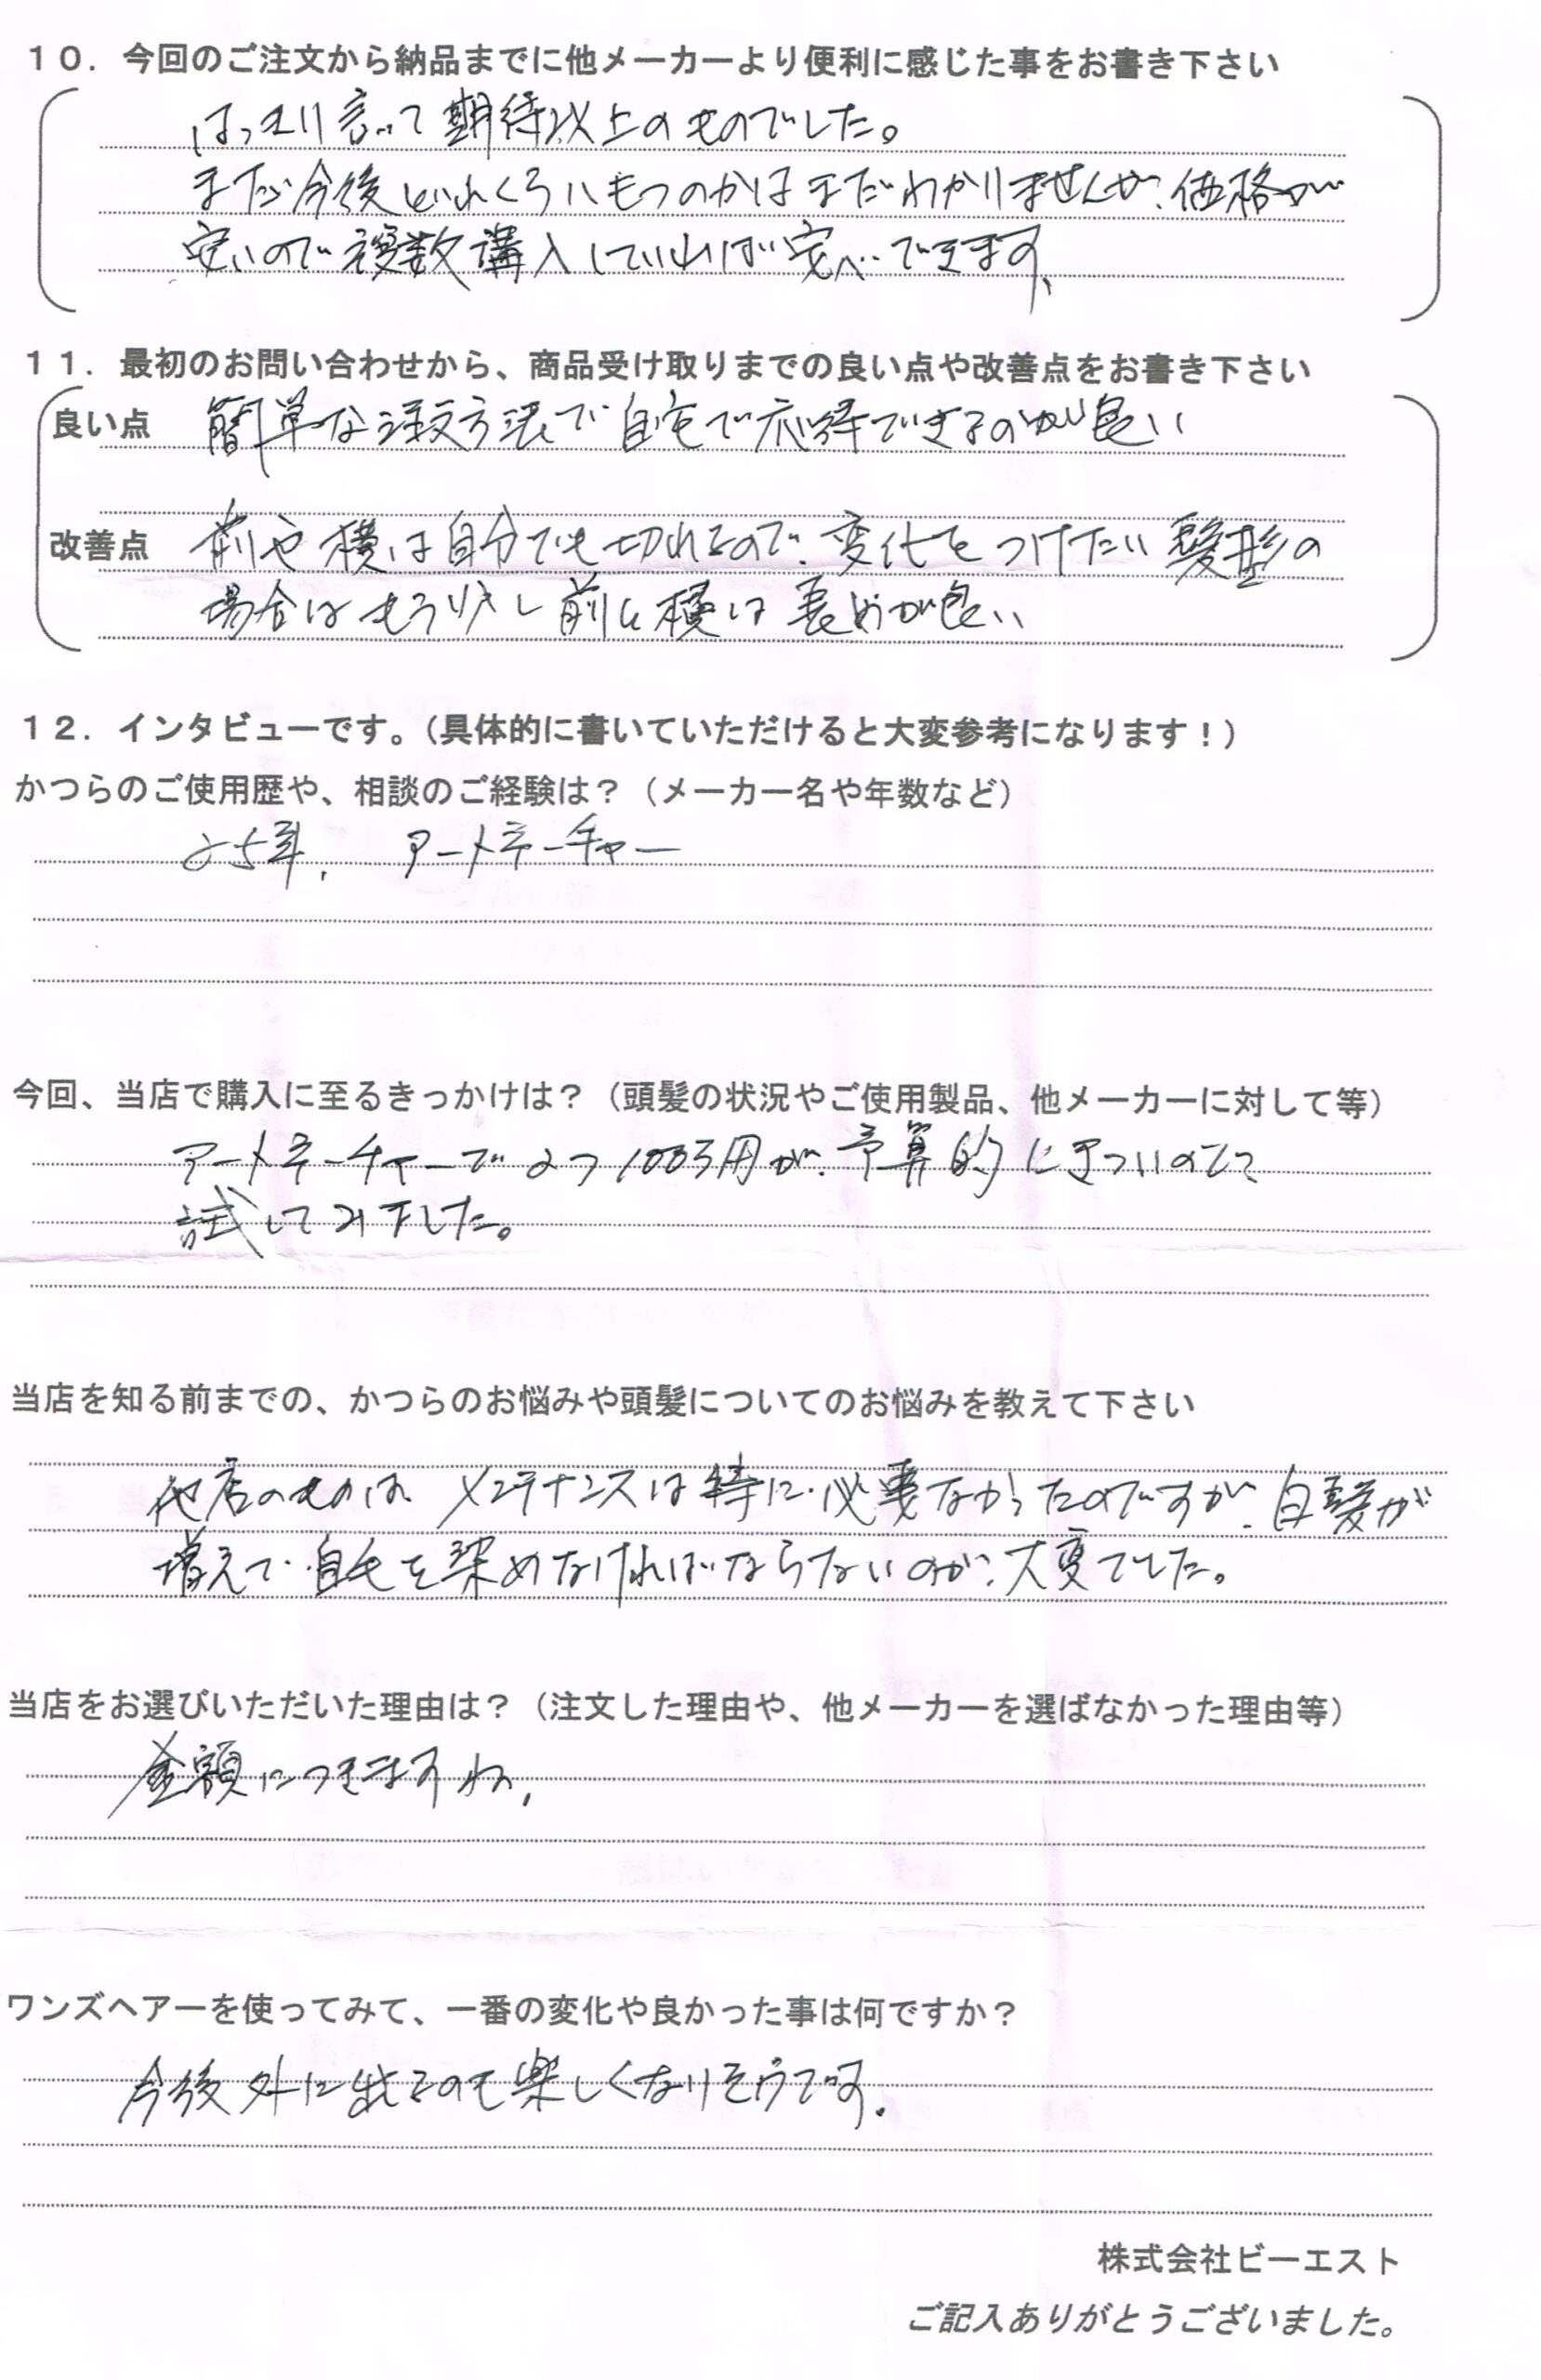 １０．今回のご注文から納品までに他メーカーより便利に感じた事をお書き下さい
はっきり言って期待以上のものでした。
まだ今後どれくらいもつのかはまだわかりませんが、価格が
安いので複数購入していれば安心できます、
１１．最初のお問い合わせから、商品受け取りまでの良い点や改善点をお書き下さい
良い点 簡単な注文方法で自宅で応待できるのが良い
改善点 前や横は自分でも切れるので、変化をつけたい髪型の
場合はもう少し前と横は長めが良い
１２．インタビューです。（具体的に書いていただけると大変参考になります！）
かつらのご使用歴や、相談のご経験は？（メーカー名や年数など）
25年、 アートネーチャー
今回、当店で購入に至るきっかけは？（頭髪の状況やご使用製品、他メーカーに対して等）
アートネーチャーで2つ100万円が、予算的にきついので、
試してみました。
当店を知る前までの、かつらのお悩みや頭髪についてのお悩みを教えて下さい
他店のものは、メンテナンスは特に必要なかったのですが、白髪が
増えて、自毛を染めなければならないのが、大変でした。
当店をお選びいただいた理由は？（注文した理由や、他メーカーを選ばなかった理由等）
金額につきますね、
ワンズヘアーを使ってみて、一番の変化や良かった事は何ですか？
今後外に出るのも楽しくなりそうです。
株式会社ビーエスト
ご記入ありがとうございました。